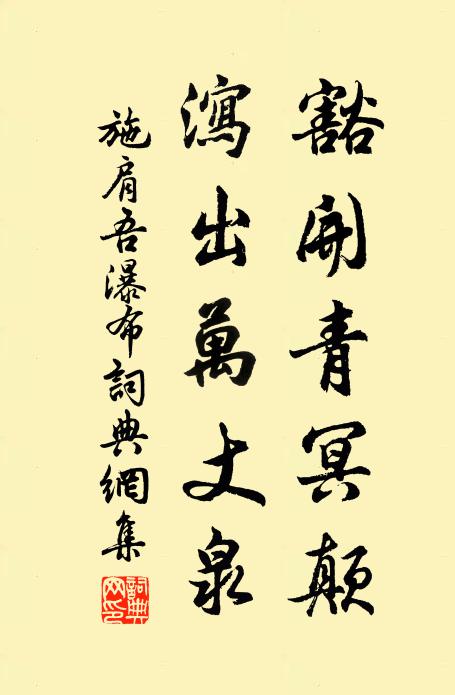 豁開青冥顛
瀉出萬丈泉
施肩吾瀑布詞典網集
詞典網印